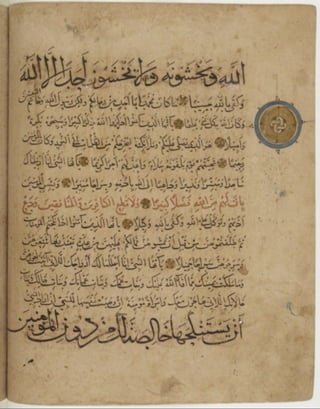 الله ويخشونه ولا يخشون أحدا إلا الله
وكفى بالله حسيبا ما كان محمد أبا أحد من رجالكم ولكن رسول الله وخاتم النبيين
وكان الله بكل شيء عليما يا أيها الذين آمنوا اذكروا الله ذكرا كثيرا وسبحوه بكرة
وأصيلا هو الذي يصلي عليكم وملائكته ليخرجكم من الظلمات إلى النور وكان بالمؤمنين
رحيما تحيتهم يوم يلقونه سلام وأعد لهم أجرا كريما يا أيها النبي إنا أرسلناك
شاهدا ومبشرا ونذيرا وداعيا إلى الله بإذنه وسراجا منيرا وبشر المؤمنين
بأن لهم من الله فضلا كبيرا ولا تطع الكافرين والمنافقين ودع
أذاهم وتوكل على الله وكفى بالله وكيلا يا أيها الذين آمنوا إذا نكحتم المؤمنات
ثم طلقتموهن من قبل أن تمسوهن فما لكم عليهن من عدة تعتدونها فمتعوهن
وسرحوهن سراحا جميلا يا أيها النبي إنا أحللنا لك أزواجك اللاتي آتيت أجورهن
وما ملكت يمينك مما أفاء الله عليك وبنات عمك وبنات عماتك وبنات خالك وبنات
خالاتك اللاتي هاجرن معك وامرأة مؤمنة إن وهبت نفسها للنبي إن أراد النبي
أن يستنكحها خالصة لك من دون المؤمنين